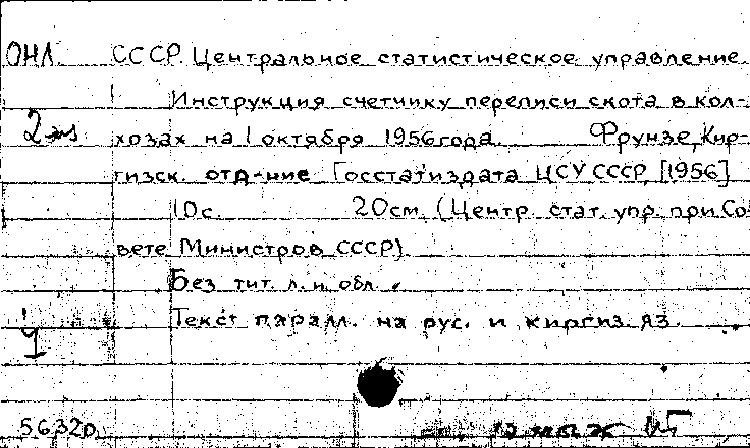 ОНЛ. СССР. Центральное статистическое управление.
Инструкция счетчику переписи скота в кол-
2 экз. хозах на 1 октября 1956 года. Фрунзе, Кир-
гизск. отд-ние Госстатиздата ЦСУ СССР, [1956]
10 с. 20 см. (Центр. стат. упр. при Со-
вете Министров СССР).
Без тит. л. и обл.
Текст паралл. на рус. и киргиз. яз.
5632р